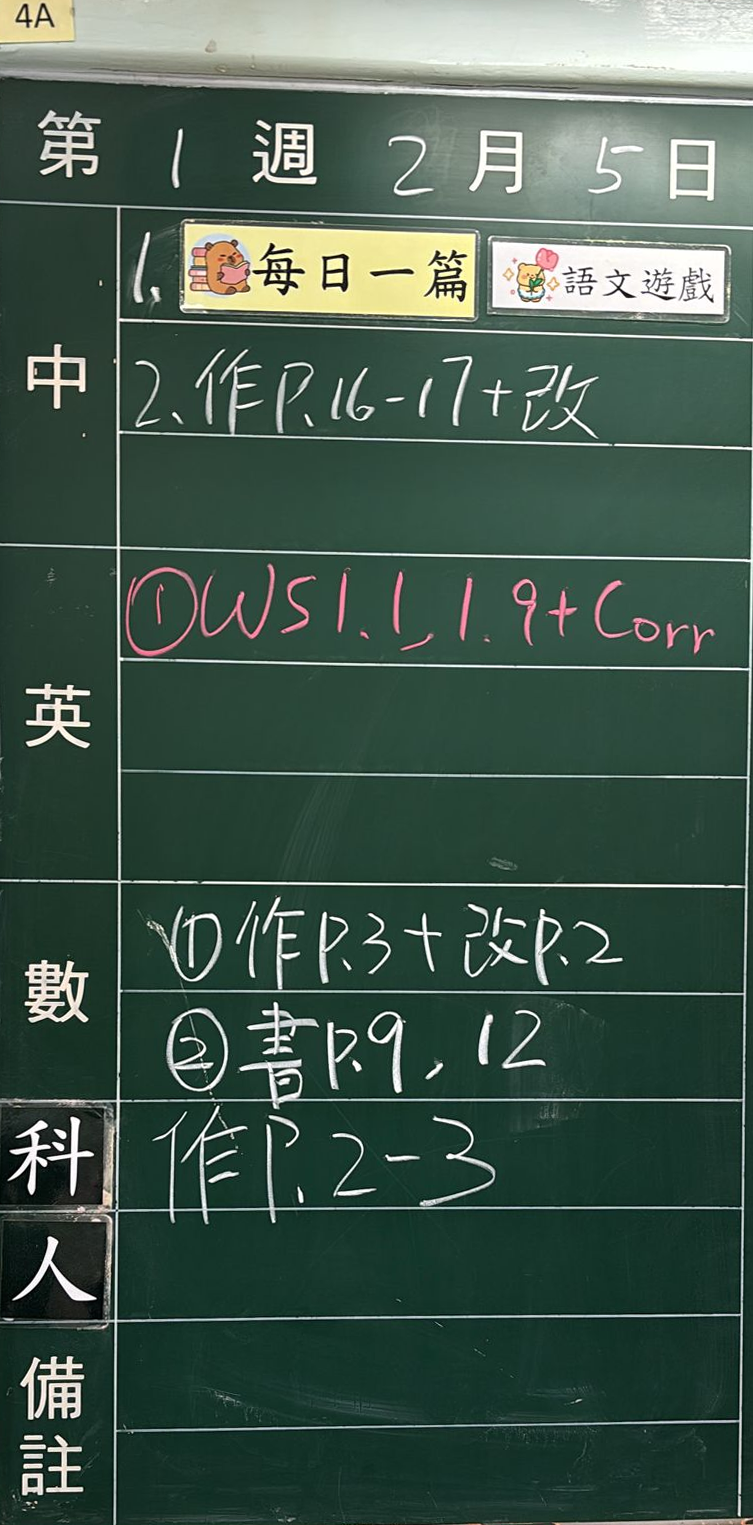 4A
第 1 週 2 月 5 日
中
1. 每日一篇 語文遊戲
2. 作P.16-17+改
英
①WS1.1, 1.9+Corr
數
①作P.3+改P.2
②書P.9, 12
科
作P.2-3
人
備註